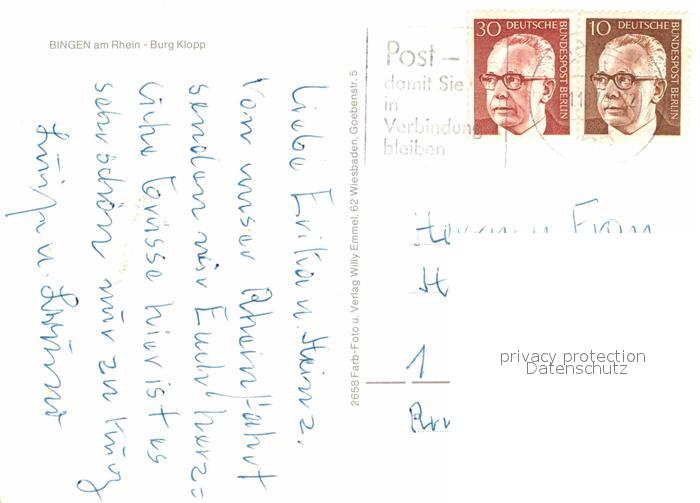 BINGEN am Rhein - Burg Klopp
Liebe Erika u. Heinz.
Von unser Rheinfahrt
senden wir Euch herz=
liche Grüsse hier ist es
sehr schön nur zu kurz
2658 Farb-Foto u. Verlag Willy Emmel, 62 Wiesbaden, Goebenstr. 5
Post –
damit Sie
in
Verbindung
bleiben
30 DEUTSCHE BUNDESPOST BERLIN
10 DEUTSCHE BUNDESPOST BERLIN
Herrn u. Frau
H
1
privacy protection
Datenschutz